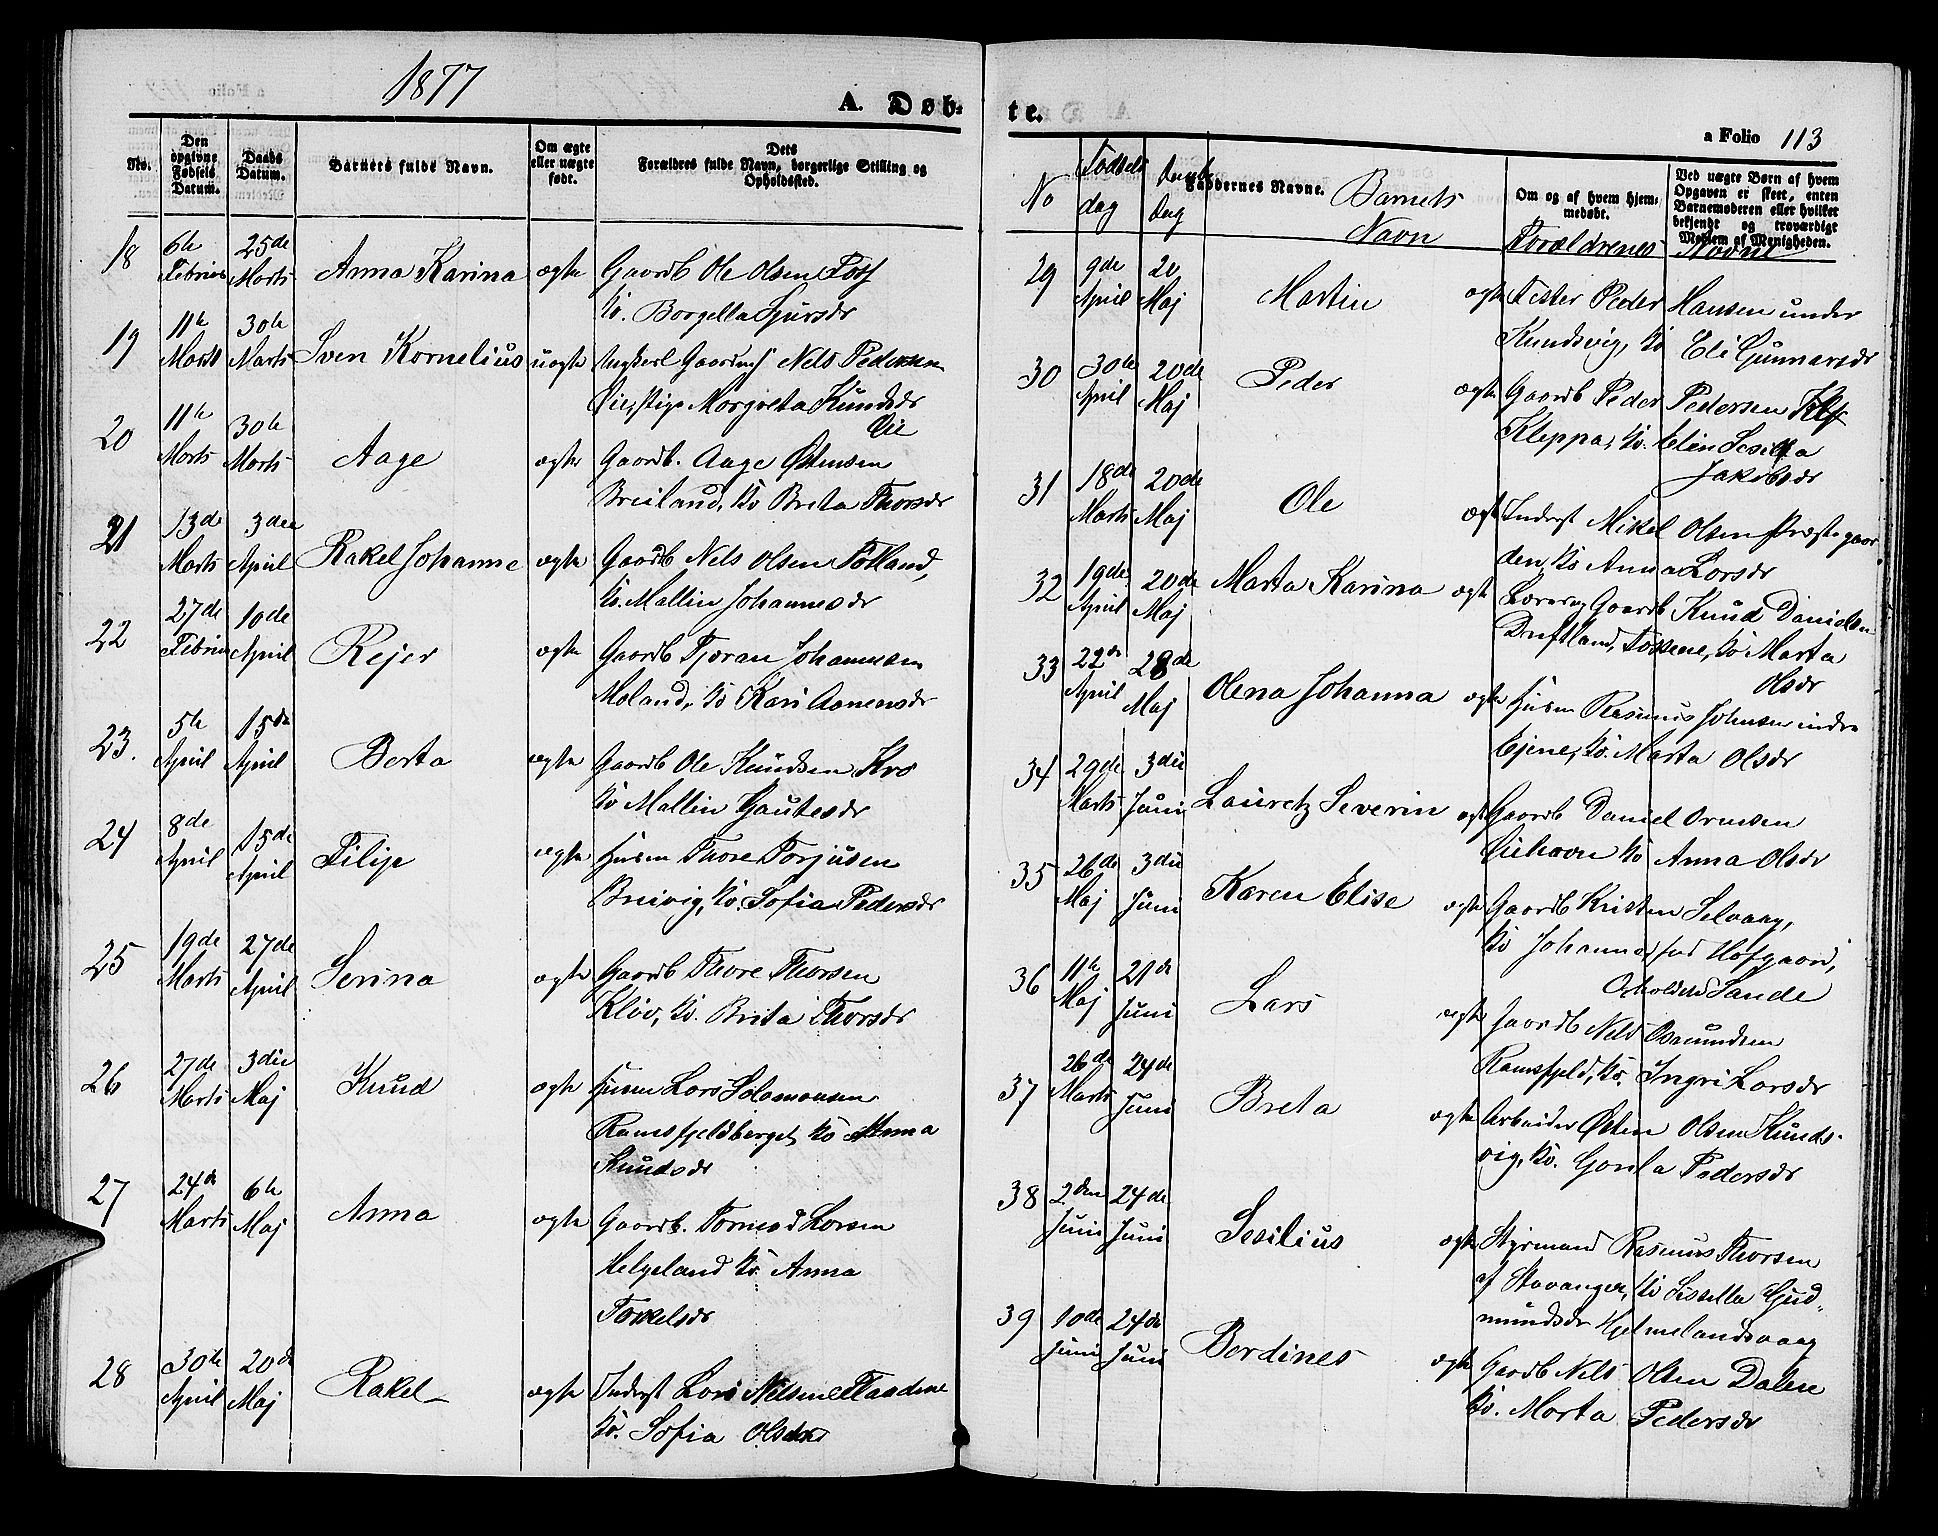 1877
A. Døb-
No.
Den opgivne Fødsels Datum.
Daabs Datum.
Barnets fulde Navn.
Om ægte eller uægte født.
Dets Forældres fulde Navn, borgerlige Stilling og Opholdssted.
18 6te Februar 25de Marts Anna Karina ægte Gaardb Ole Olsen Foss
Ko. Borgella Sjursdr
19 11te Marts 30te Marts Sven Kornelius uægte Ungkarl Gaardm Nels Pedersen
Pige Margreta Knudsdr
20 11te Marts 30te Marts Aage ægte Gaardb. Aage Østensen
Breiland, Ko Breta Thorsdr
21 13de Marts 3die April Rakel Johanne ægte Gaardb Nels Olsen Tøtland,
Ko. Mallin Johannesdr
22 27de Februar 10de April Rejer ægte Gaardb Tjeran Johannesen
Moland, Ko Kari Asmensdr
23. 5te April 15de April Berta ægte Gaardb Ole Knudsen Kro
Ko Mallin Gautesdr
24 8de April 15de April Filip ægte Husm Thore Torjusen
Breivig, Ko. Sofia Pedersdr
25 19de Marts 27de April Serina ægte Gaardb Thore Thorsen
Kløv, Ko. Brita Thorsdr
26 27de Marts 3die Maj Knud ægte Husm Lars Salamonsen
Ramsfjeldberget Ko Anna
Knudsdr
27 24de Marts 6te Maj Anna ægte Gaardb. Tormod Larsen
Helgeland Ko Anna
Torkelsdr
28 30te April 20de Maj Rakel ægte Inderst Lars Nelsen
Ko. Sofia Olsdr
te.
a Folio 113
No
Fødsels dag
Daabs Dag
Faddernes Navne.
Barnets Navn
Om og af hvem hjemmedøbt.
Ved uægte Børn af hvem Opgaven er skeet, enten Barnemoderen eller hvilket bekjendt og troværdigt Medlem af Menigheden.
Forældrenes Navne
29 9de April 20 Maj Martin ægte Peder Hansen under
Knudsvig, Ko Eli Gunnarsdr
30 30te April 20de Maj Peder ægte Gaardb Peder Pedersen
Kleppa, Ko. Elin Sesilia
Jakobsdr
31 18de Marts 20de Maj Ole ægte Inderst Mikel Olsen Præstegaar
den, Ko Anna Larsdr
32 19de April 20de Maj Marta Karina ægte Lærer og Gaardb Knud Danielsen
Tøssene, Ko Marta
Olsdr
33 22de April 28de Maj Olena Johanna ægte Husm Rasmus Johnsen indre
Eiene, Ko. Marta Olsdr
34 29de Marts 3die Juni Lauretz Severin ægte Gaardb Daniel Ormsen
Øiehavn Ko Anna Olsdr
35 26de Maj 3die Juni Karen Elise ægte Gaardb Kristen Selvaag,
Ko Johanna fød Hofgaard,
Sande
36 11te Maj 21de Juni Lars ægte Gaardb Nels Osmundsen
Ramsfjeld, Ko. Ingri Larsdr
37 26de Marts 24de Juni Breta ægte Arbeider Østen Olsen Knuds-
vig, Ko. Gonla Pedersdr
38 2den Juni 24de Juni Sesilius ægte Styrmand Rasmus Thorsen
af Stavanger, Ko Sissella Gud-
mundsdr Hjelmelandsvaag
39 10de Juni 24de Juni Berdines ægte Gaardb Nels Olsen Dalene
Ko. Marta Pedersdr